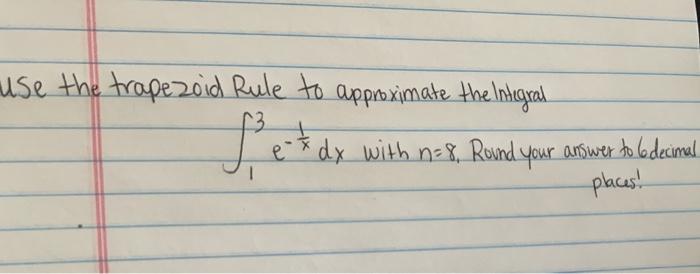 use the trapezoid Rule to approximate the Integral
∫₁³ e^(-1/x) dx with n=8. Round your answer to 6 decimal
places!